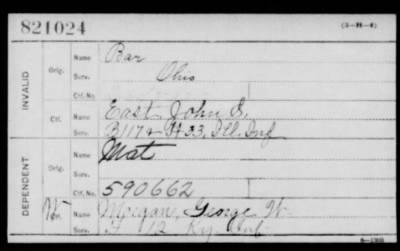 821024
(3-H-4)
INVALID
Orig.
Name Bar
Serv. Ohio
Ctf. No.
Ctf.
Name East, John S,
Serv. 33, Ill, Inf
DEPENDENT
Orig.
Name Mat
Serv.
Ctf. No. 590662
Name Morgan, George W.
Serv. H 12 Ky. Inf